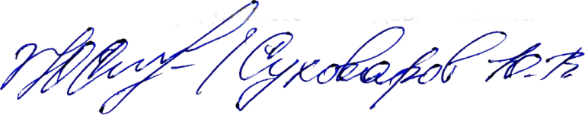 /Суховаров Ю.В.